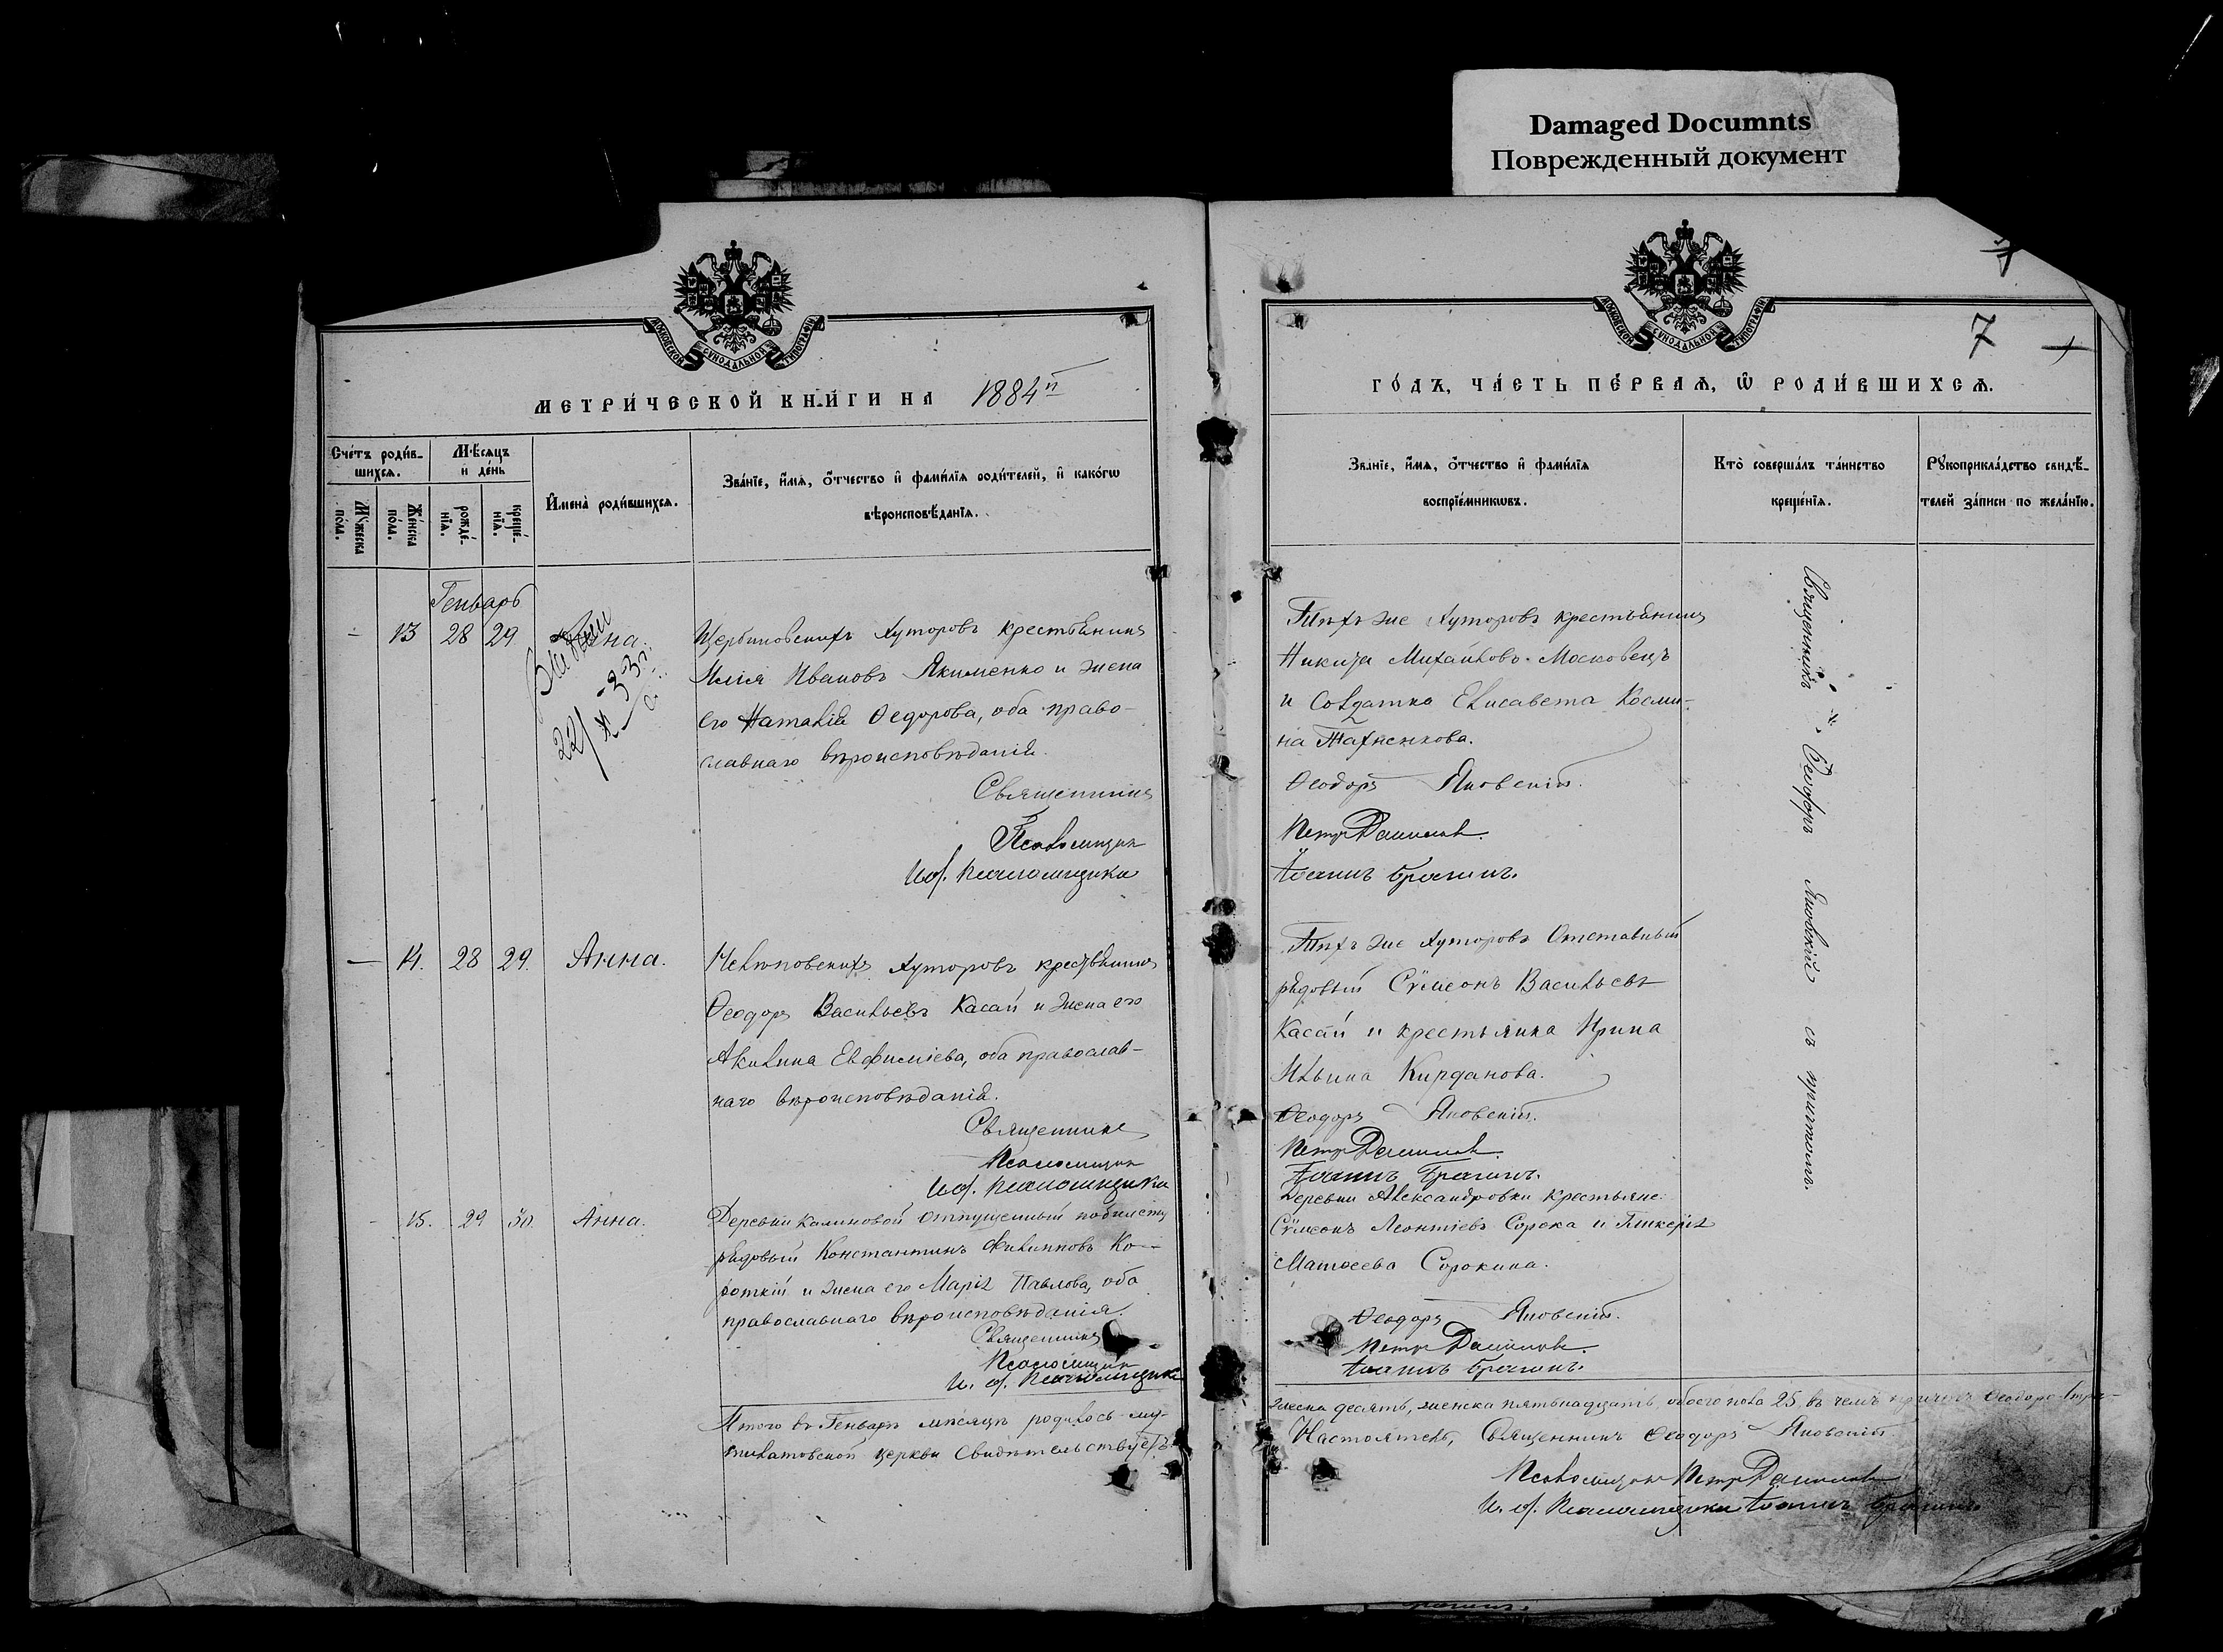 Damaged Documnts
Поврежденный документ
МОСКОВСКОЙ СУНОДАЛЬНОЙ ТИПОГРАФІИ
МЕТРИ́ЧЕСКОЙ КНИ́ГИ НА 1884й
Сче́тъ роди́в-
шихся.
Мѣ́сяцъ
и де́нь
Му́жеска
по́ла.
Же́нска
по́ла.
рожде́-
нїя.
креще́-
нїя.
Имена̀ роди́вшихся.
Зва́нїе, и́мя, о́тчество и фами́лїя роди́телей, и како́гѡ
вѣроисповѣ́данїя.
Генварь
- 13 28 29 Анна.
22/X 33 г.
Щербиновскихъ Хуторовъ крестьянинъ
Илія Ивановъ Якименко и жена
его Наталія Ѳедорова, оба право-
славнаго вѣроисповѣданія.
Священникъ
Псаломщик
И.об. псаломщика
— 14. 28 29. Анна.
хуторовъ крестьянинъ
Ѳеодоръ Васильевъ Касай и жена его
Акилина Евфиміева, оба православ-
наго вѣроисповѣданія.
Священникъ
Псаломщик
И.об. псаломщика
- 15. 29 30. Анна.
Деревни Калиновой Отпущенный по билету
рядовый Константинъ Филипповъ Ко-
роткій и жена его Марія Павлова, оба
православнаго вѣроисповѣданія.
Священникъ
Псаломщик
И. об. Псаломщика
Итого въ Генварѣ мѣсяцѣ родилось му-
церкви Свидѣтельствуетъ.
МОСКОВСКОЙ СУНОДАЛЬНОЙ ТИПОГРАФІИ
7
ГО́ДЪ, ЧА́СТЬ ПЕ́РВАЯ, Ѡ РОДИ́ВШИХСЯ.
Зва́нїе, и́мя, о́тчество и фами́лїя
воспрїе́мникѡвъ.
Кто̀ соверша́лъ та́инство
креще́нїя.
Рꙋкоприкла́дство свидѣ́-
телей за́писи по жела́нїю.
Тѣхъ же Хуторовъ крестьянинъ
Никита Михайловъ Московецъ
и Солдатка Елисавета Косми-
на
Ѳеодоръ Яновскій.
Петръ Данилов.
Іоаннъ Брагинъ.
Тѣхъ же Хуторовъ Отставный
рядовый Сѵмеонъ Васильевъ
Касай и крестьянка Ирина
Ильина Курданова.
Ѳеодоръ Яновскій.
Петръ Данилов.
Іоаннъ Брагинъ.
Деревни Александровки крестьяне:
Сѵмеонъ Леонтіевъ Сорока и Гликерія
Матѳеева Сорокина.
Ѳеодоръ Яновскій.
Петръ Данилов.
Іоаннъ Брагинъ.
Священникъ Ѳеодоръ Яновскій съ причтомъ.
жеска десять, женска пятьнадцать, обоего пола 25. въ чемъ причтъ
Настоятель, Священникъ Ѳеодоръ Яновскій
Псаломщик Петръ Данилов
И. об. Псаломщика Іоаннъ Брагинъ.